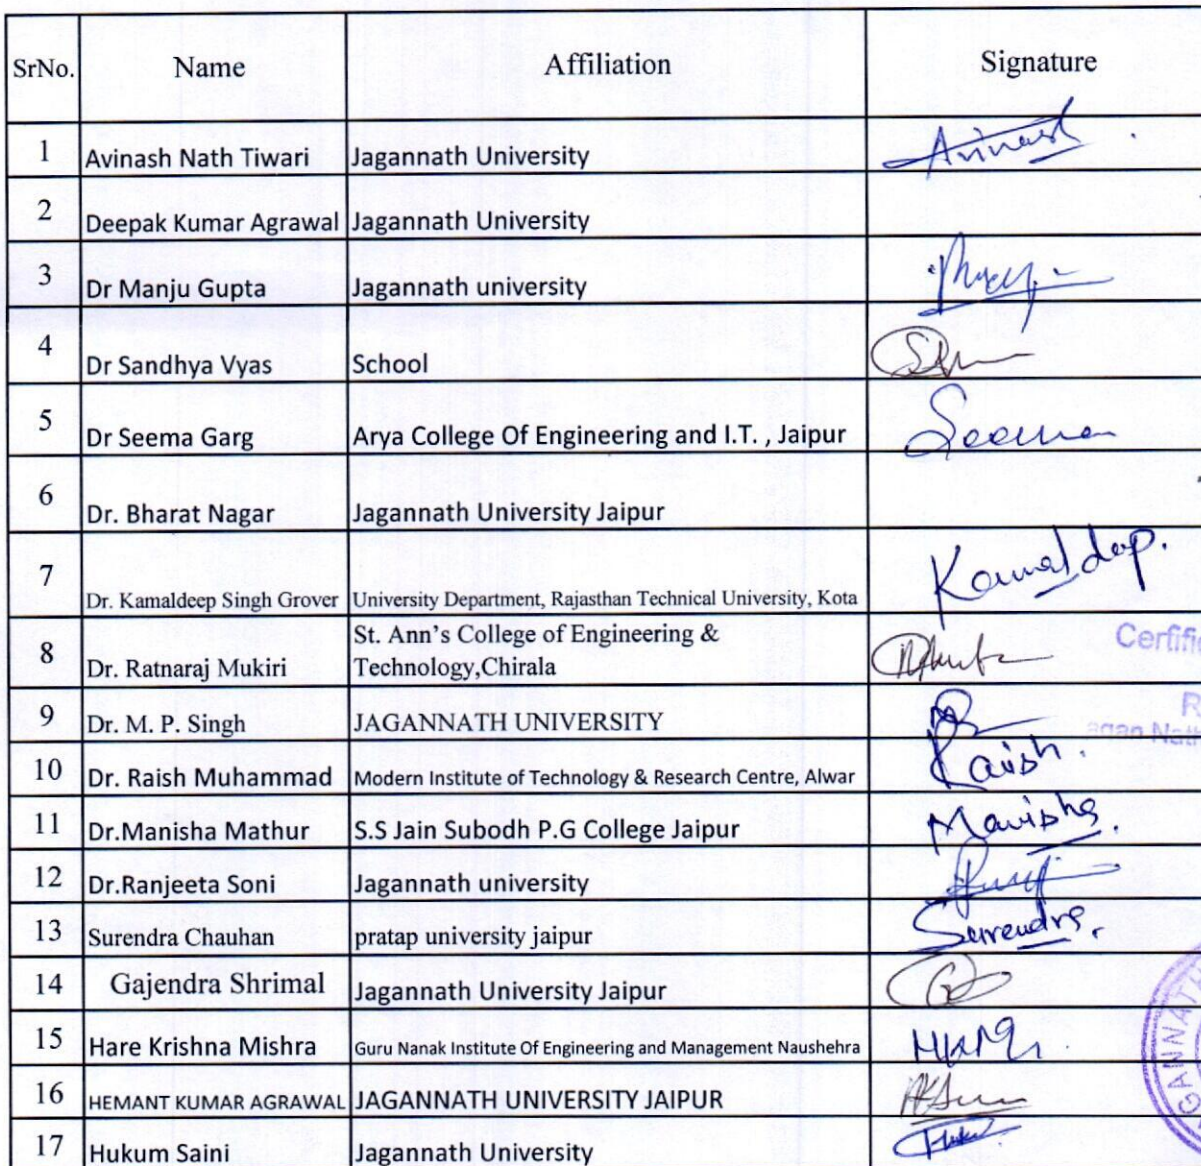 SrNo. Name Affiliation Signature
1 Avinash Nath Tiwari Jagannath University Avinash
2 Deepak Kumar Agrawal Jagannath University
3 Dr Manju Gupta Jagannath university
4 Dr Sandhya Vyas School
5 Dr Seema Garg Arya College Of Engineering and I.T. , Jaipur Seema
6 Dr. Bharat Nagar Jagannath University Jaipur
7 Dr. Kamaldeep Singh Grover University Department, Rajasthan Technical University, Kota Kamaldeep.
8 Dr. Ratnaraj Mukiri St. Ann's College of Engineering &
Technology,Chirala
9 Dr. M. P. Singh JAGANNATH UNIVERSITY
10 Dr. Raish Muhammad Modern Institute of Technology & Research Centre, Alwar Raish.
11 Dr.Manisha Mathur S.S Jain Subodh P.G College Jaipur Manisha
12 Dr.Ranjeeta Soni Jagannath university
13 Surendra Chauhan pratap university jaipur Surendra.
14 Gajendra Shrimal Jagannath University Jaipur
15 Hare Krishna Mishra Guru Nanak Institute Of Engineering and Management Naushehra
16 HEMANT KUMAR AGRAWAL JAGANNATH UNIVERSITY JAIPUR
17 Hukum Saini Jagannath University Hukum